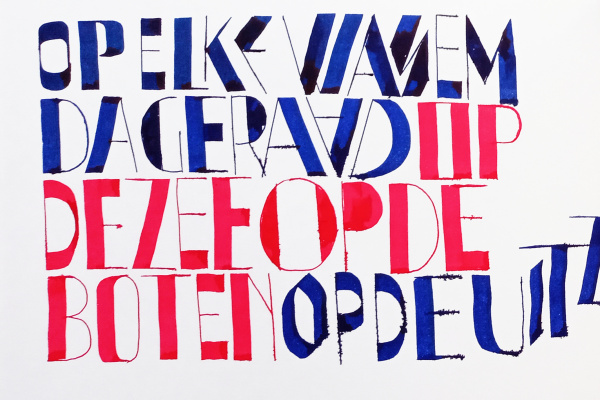 OP ELKE WASEM
DAGERAAD OP
DE ZEE OP DE
BOTEN OP DE UITZ